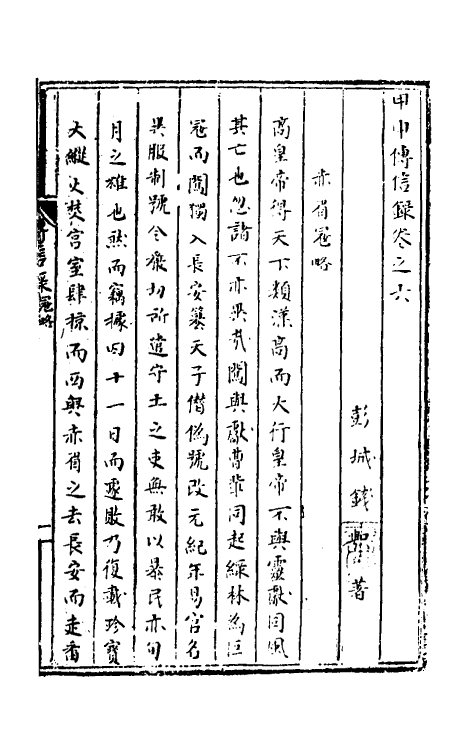 甲申傳信錄卷之六
彭城錢 著
赤眉寇略
高皇帝得天下類漢高而大行皇帝不與靈獻同風
其亡也忽諸不亦異哉闖與獻曹輩同起綠林為巨
寇而闖獨入長安簒天子僭偽號改元紀年易官名
異服制號令嚴切所遣守土之吏無敢以暴民亦旬
月之雄也然而竊據四十一日而遽敗乃復載珍寶
大縱火焚宮室肆掠而西與赤眉之去長安而走者